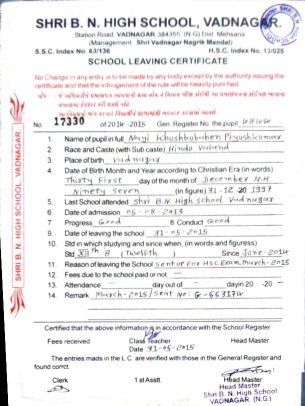 SHRI B. N. HIGH SCHOOL, VADNAGAR.
Station Road, VADNAGAR. 384355. (N.G) Dist. Mehsana
(Management Shri Vadnagar Nagrik Mandal)
S.S.C. Index No. 63/136 H.S.C. Index No. 13/025
SCHOOL LEAVING CERTIFICATE
No Change in any entry is to be made by any body except by the authority issuing
the certificate and that the infringement of the rule will be heavily punished.
No. 17330 of 2014-2015 Gen. Register No. the pupil
1. Name of pupil in full Nayi Khushbubahen Piyushkumar
2. Race and Caste (with Sub caste) Hindu Valand
3. Place of birth Vadnagar
4. Date of Birth Month and Year according to Christian Era (in words)
Thirty First day of the month of December N.H.
Ninety Seven (in figure) 31-12-1997
5. Last School attended Shri B.N. High School Vadnagar
6. Date of admission 05-08-2013
7. Progress Good 8 Conduct Good
9. Date of leaving the school 31-05-2015
10. Std in which studying and since when, (in words and figures)
Std XIIth B (Twelfth) Since June-2014
11. Reason of leaving the School Sent up for HSC Exam. March-2015
12. Fees due to the school paid or not —
13. Attendance — day out of — day in 20 -20 -
14. Remark March-2015/Seat No: G-663174
Certified that the above information is in accordance with the School Register
Fees received Class Teacher Head Master
Date 31-05-2015
The entries made in the L.C. are verified with those in the General Register and
found correct.
Clerk 1st Asstt. Head Master
Head Master
Shri B. N. High School
VADNAGAR. (N.G.)
SHRI B. N. HIGH SCHOOL, VADNAGAR.